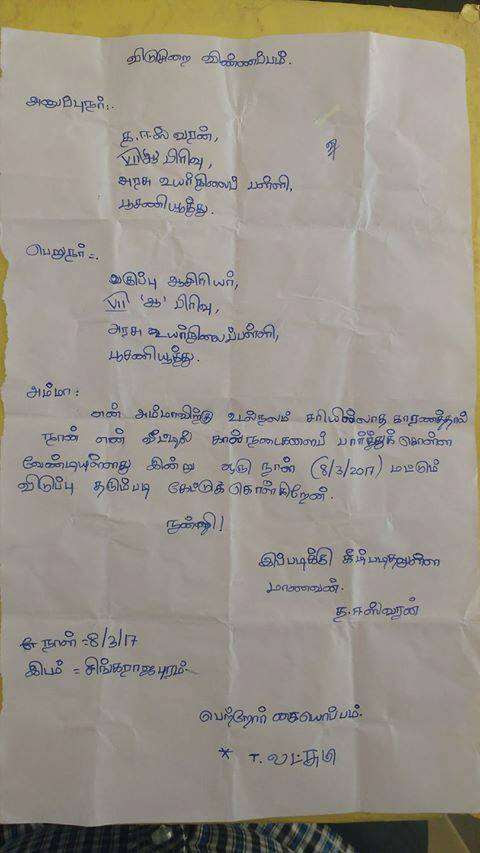 விடுமுறை விண்ணப்பம்.
அனுப்புநர்:-
த.ஈஸ்வரன்,
VII 'ஆ' பிரிவு,
அரசு உயர்நிலைப் பள்ளி,
பூசணியூத்து.
பெறுநர்:-
வகுப்பு ஆசிரியர்,
VII 'ஆ' பிரிவு,
அரசு உயர்நிலைப்பள்ளி,
பூசணியூத்து.
அம்மா:
என் அம்மாவிற்கு உடல்நலம் சரியில்லாத காரணத்தால்
நான் என் வீட்டில் கால்நடைகளைப் பார்த்துக் கொள்ள
வேண்டியுள்ளது இன்று ஒரு நாள் (8/3/2017) மட்டும்
விடுப்பு தரும்படி கேட்டுக் கொள்கிறேன்.
நன்றி!
இப்படிக்கு கீழ்படிதலுள்ள
மாணவன்.
த.ஈஸ்வரன்
நாள் =8/3/17
இடம் = சிங்கராஜபுரம்.
பெற்றோர் கையொப்பம்.
* T. லட்சுமி